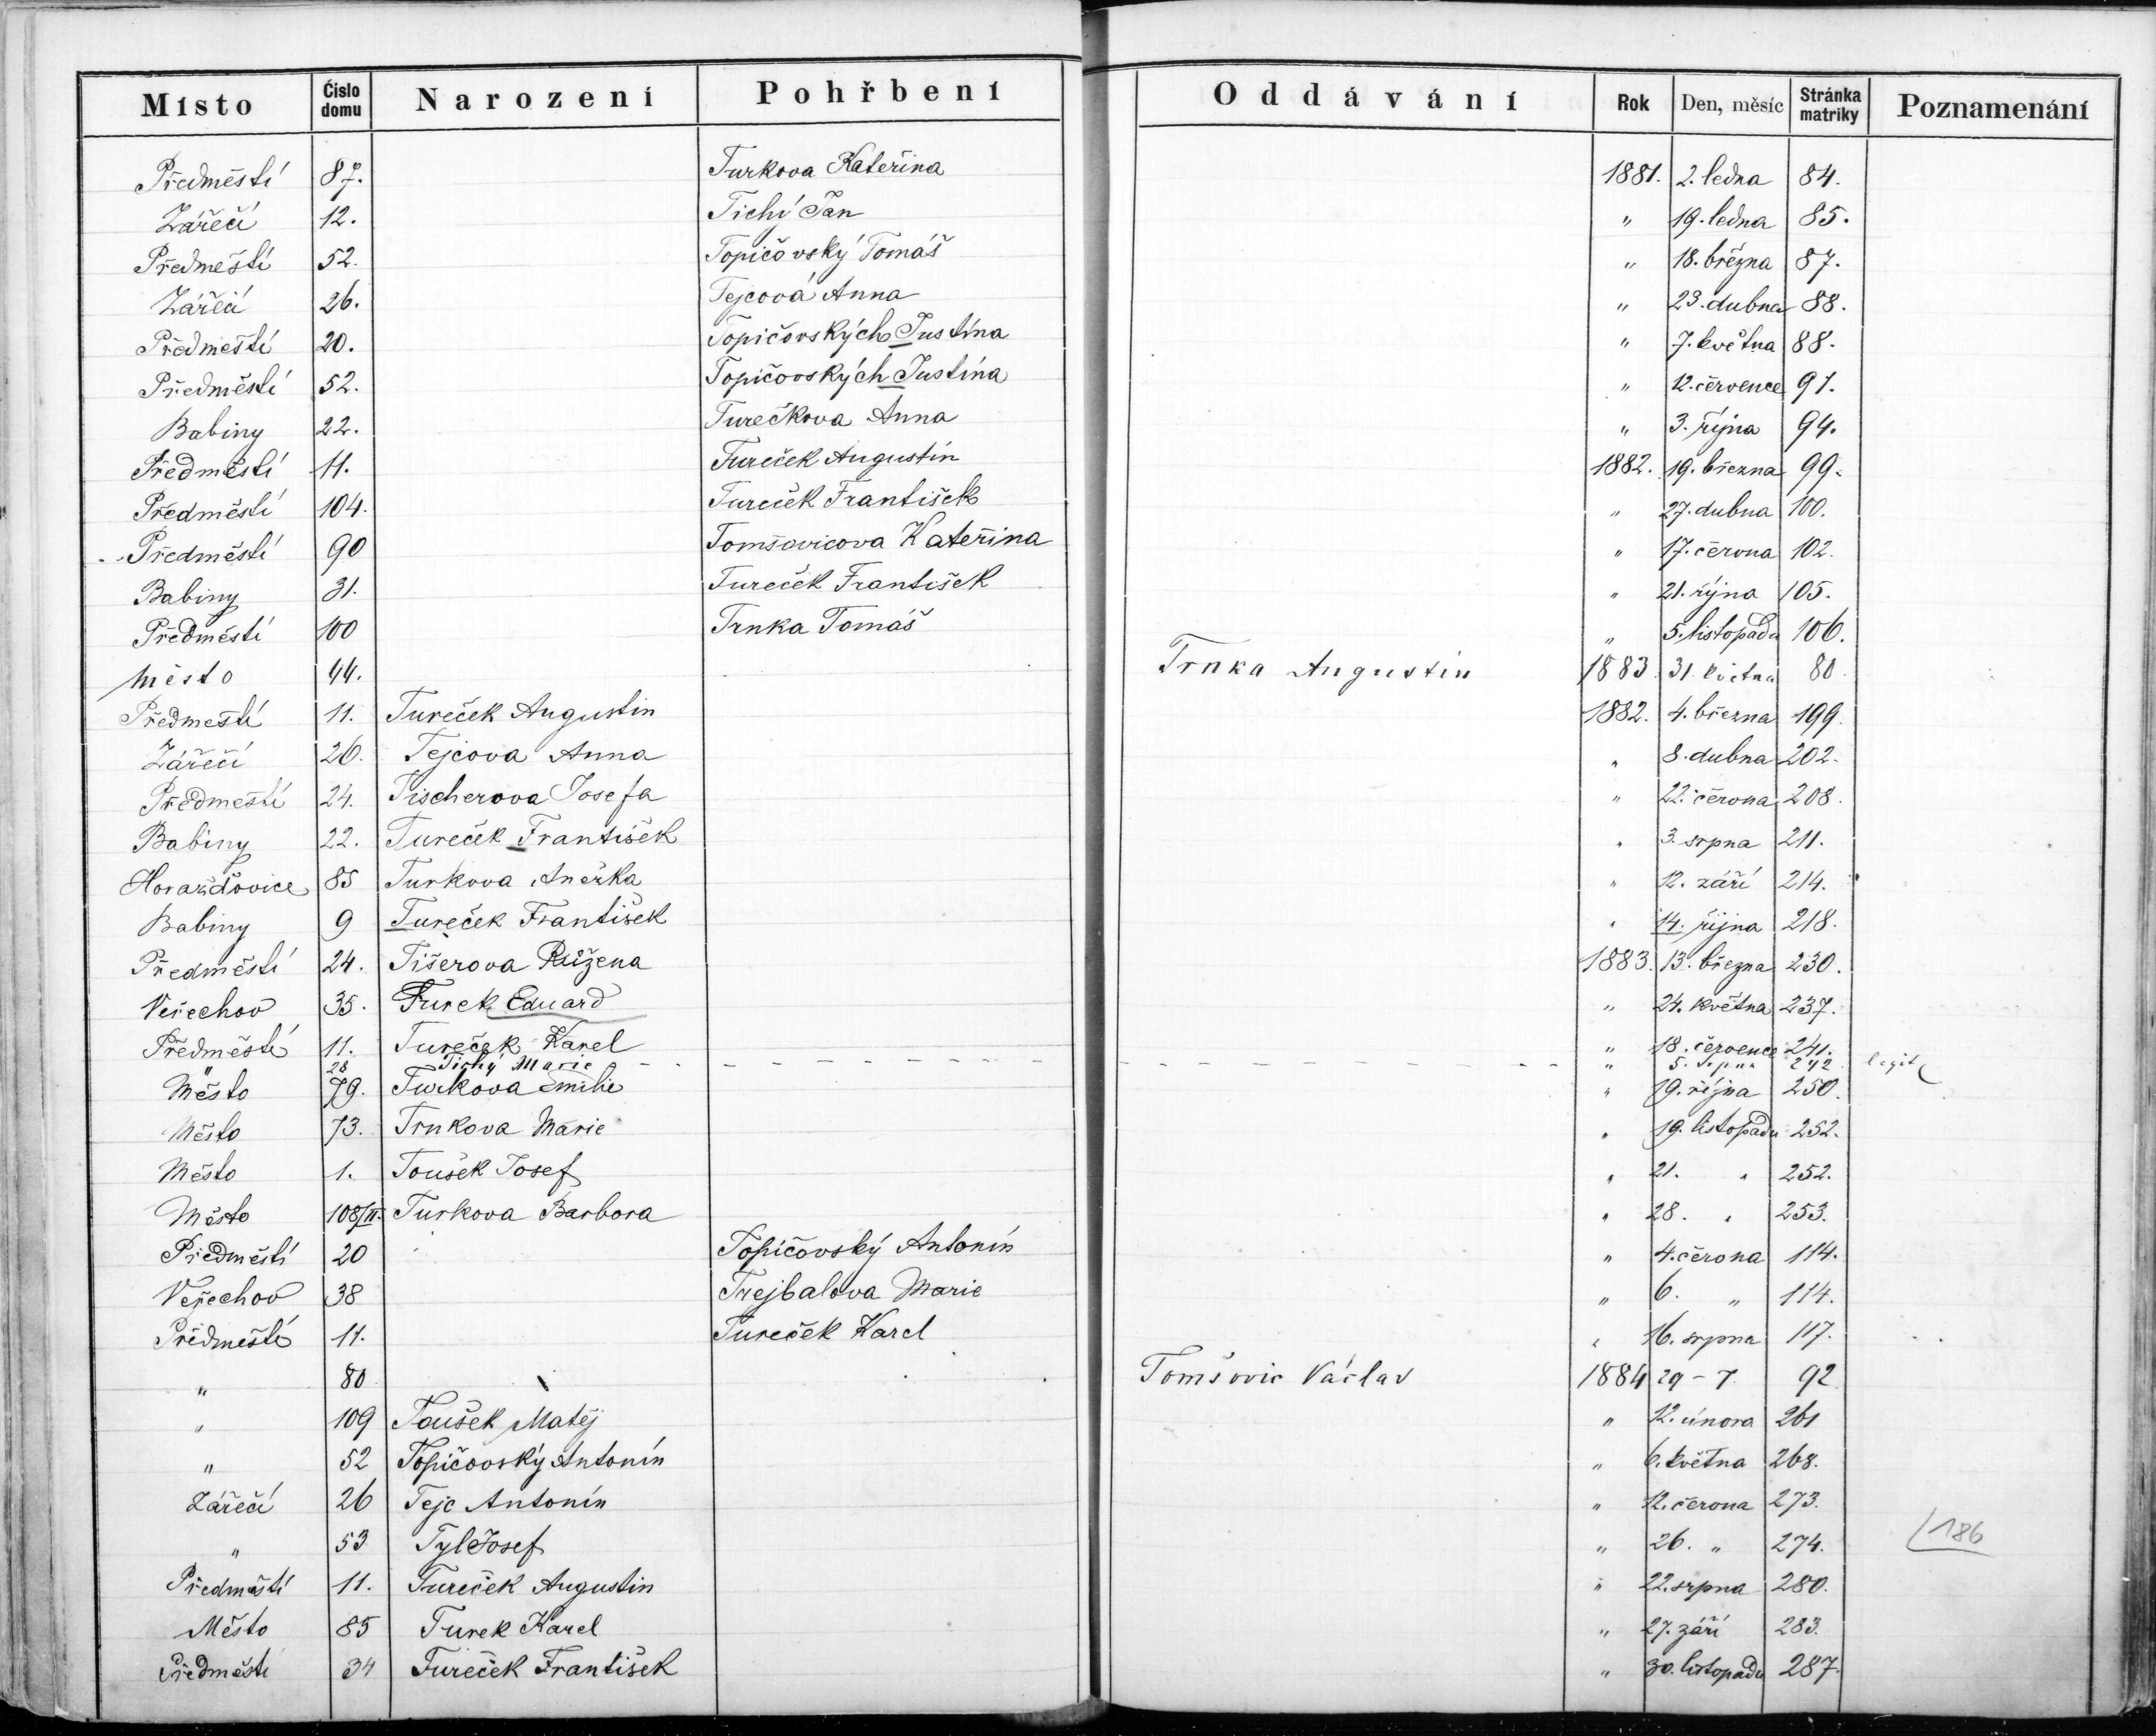 Místo Číslo domu Narození Pohřbení Oddávání Rok Den, měsíc Stránka matriky Poznamenání
Předměstí 87. Turkova Kateřina 1881. 2. ledna 84.
Zářečí 12. Tichý Jan " 19. ledna 85.
Předměstí 52. Topičovský Tomáš " 18. března 87.
Zářečí 26. Tejcová Anna " 23. dubna 88.
Předměstí 20. Topičovských Justina " 7. května 88.
Předměstí 52. Topičovských Justina " 12. července 91.
Babiny 22. Turečkova Anna " 3. října 94.
Předměstí 11. Tureček Augustin 1882. 19. března 99.
Předměstí 104. Tureček František " 27. dubna 100.
Předměstí 90 Tomšovicova Kateřina " 17. června 102.
Babiny 31. Tureček František " 21. října 105.
Předměstí 100 Trnka Tomáš " 5. listopadu 106.
Město 44. Trnka Augustin 1883 31. května 80.
Předměstí 11. Tureček Augustin 1882. 4. března 199.
Zářečí 26. Tejcova Anna " 8. dubna 202.
Předměstí 24. Tischerova Josefa " 22. června 208.
Babiny 22. Tureček František " 3. srpna 211.
Horažďovice 85 Turkova Anežka " 12. září 214.
Babiny 9 Tureček František " 14. října 218.
Předměstí 24. Tišerova Růžena 1883. 13. března 230.
Veřechov 35. Turek Eduard " 24. května 237.
Předměstí 11. Tureček Karel " 18. července 241.
" 28 Tichý Marie " 5. srpna 242 legit
Město 79. Turkova Emilie " 19. října 250.
Město 73. Trnkova Marie " 19. listopadu 252.
Město 1. Toušek Josef " 21. " 252.
Město 108/II. Turkova Barbora " 28. " 253.
Předměstí 20 Topičovský Antonín " 4. června 114.
Veřechov 38 Trejbalova Marie " 6. " 114.
Předměstí 11. Tureček Karel " 16. srpna 117.
" 80 Tomšovic Václav 1884 29 - 7. 92
" 109 Toušek Matěj " 12. února 261
" 52 Topičovský Antonín " 6. května 268.
Zářečí 26 Tejc Antonín " 12. června 273.
" 53 Tyl Josef " 26. " 274. 186
Předměstí 11. Tureček Augustin " 22. srpna 280.
Město 85 Turek Karel " 27. září 283.
Předměstí 34 Tureček František " 30. listopadu 287.